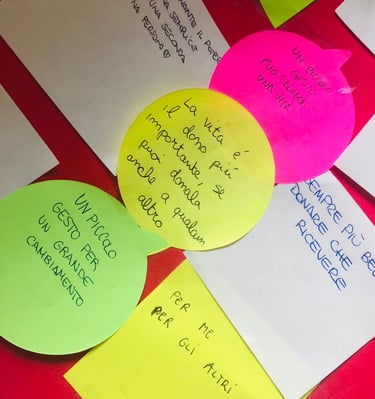 UNA SEMPLICE
UNA SECONDA
UN PICCOLO
GESTO
PUÒ SALVARE
UNA
La vita é
il dono più
importante, se
puoi donala
anche a qualcun
altro
UN PICCOLO
GESTO PER
UN GRANDE
CAMBIAMENTO
SEMPRE PIÙ BE
DONARE CHE
RICEVERE
PER ME
PER GLI ALTRI